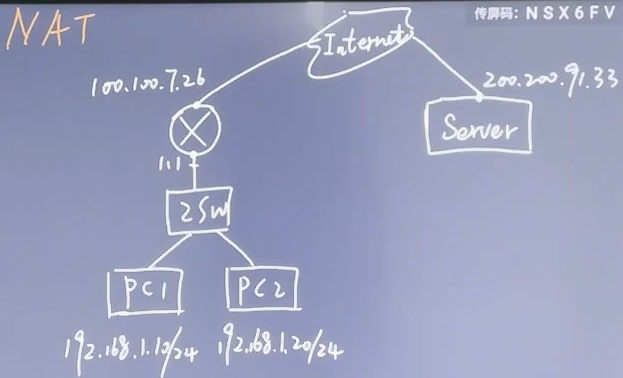 NAT
传屏码: NSX6FV
Internet
100.100.7.26
200.200.91.33
Server
1.1
2SW
PC1
PC2
192.168.1.10/24
192.168.1.20/24